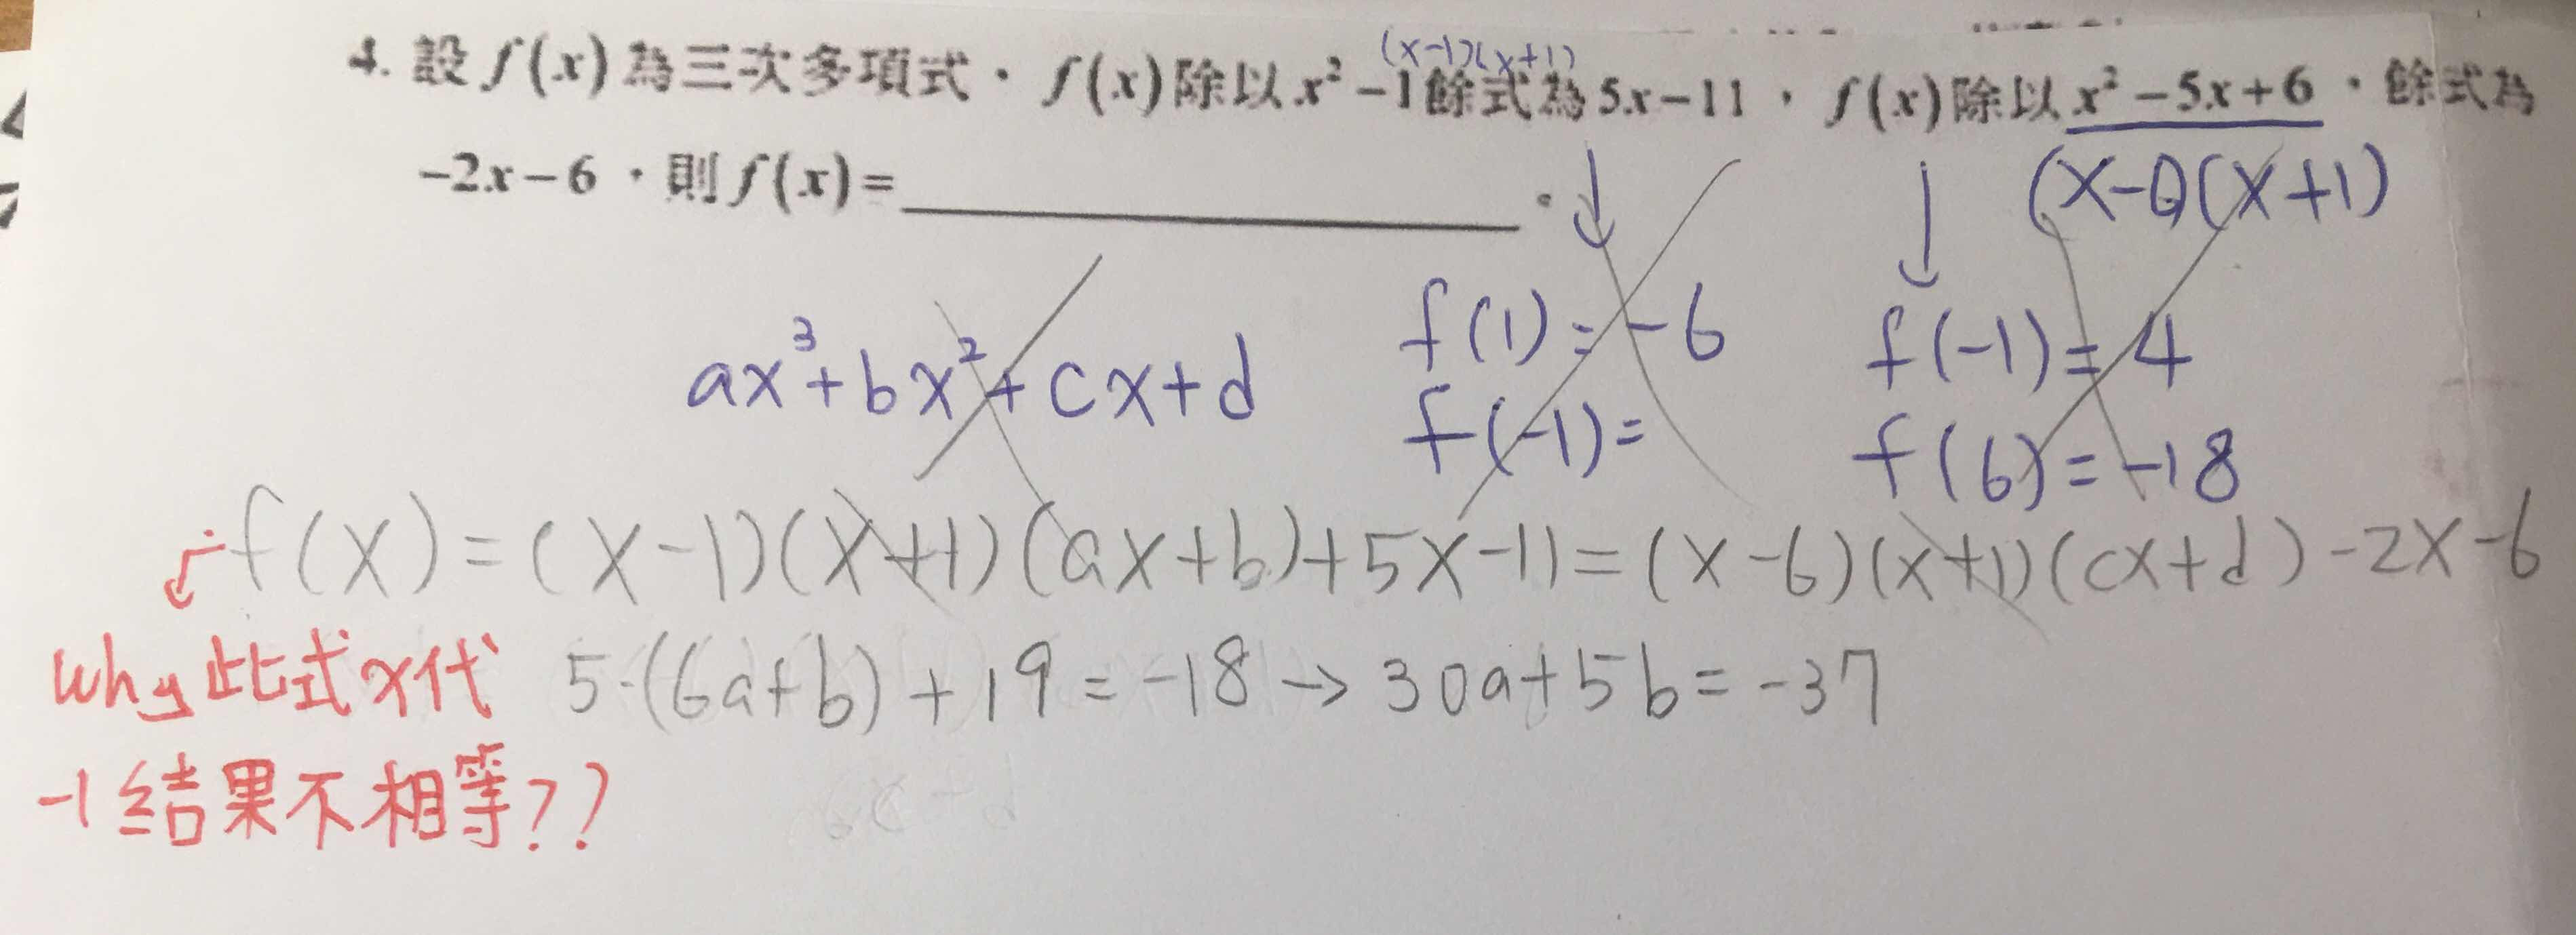 (x-1)(x+1)
4. 設 f(x) 為三次多項式，f(x) 除以 x² -1 餘式為 5x-11，f(x) 除以 x² -5x+6，餘式為
-2x-6，則 f(x)=＿＿＿＿＿＿。
(x-6)(x+1)
ax³+bx²+cx+d
f(1)=-6
f(-1)=
f(-1)=4
f(6)=-18
f(x)=(x-1)(x+1)(ax+b)+5x-11=(x-6)(x+1)(cx+d)-2x-6
why 此式x代
-1 結果不相等??
5·(6a+b)+19=-18→30a+5b=-37